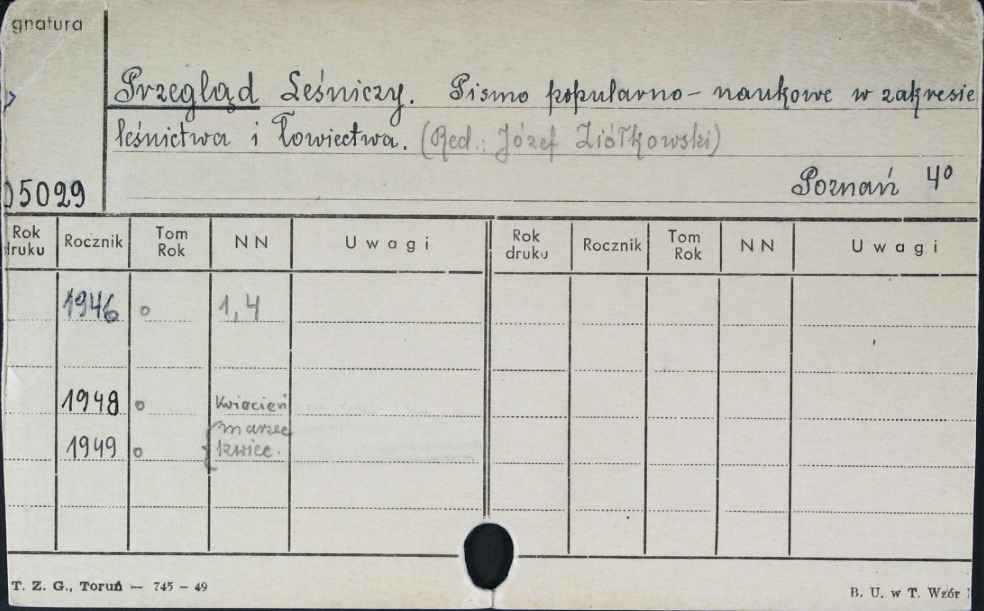 gnatura
Przegląd Leśniczy. Pismo popularno-naukowe w zakresie
leśnictwa i łowiectwa. (Red.: Józef Ziółkowski)
05029
Poznań 4°
Rok druku Rocznik Tom Rok NN Uwagi Rok druku Rocznik Tom Rok NN Uwagi
1946 o 1,4
1948 o kwiecień
marzec
1949 o kwiec.
T. Z. G., Toruń — 745 - 49
B. U. w T. Wzór